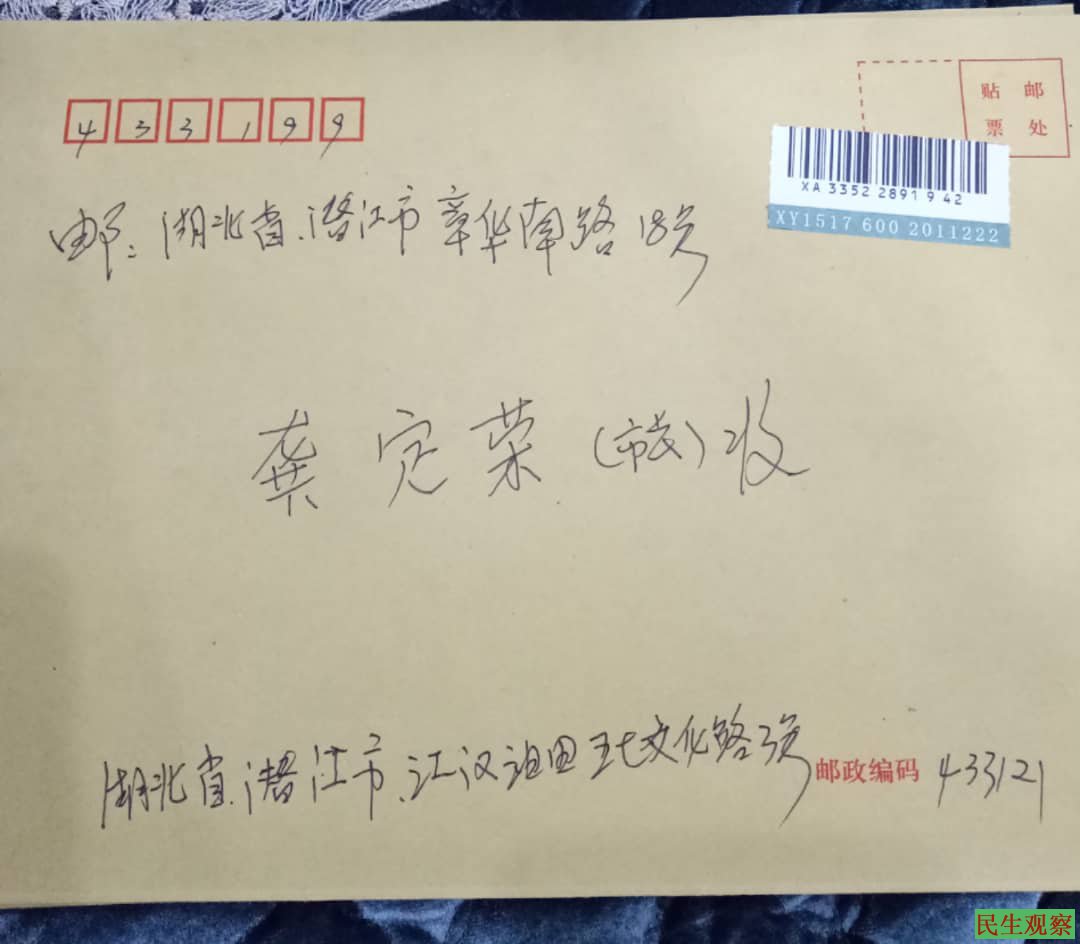 433199
贴 邮
票 处
XA 3352 2891 9 42
XY1517 600 2011222
邮：湖北省.潜江市章华南路18号
龚定荣（市长）收
湖北省.潜江市.江汉油田五七文化路3号
邮政编码 433121
民生观察